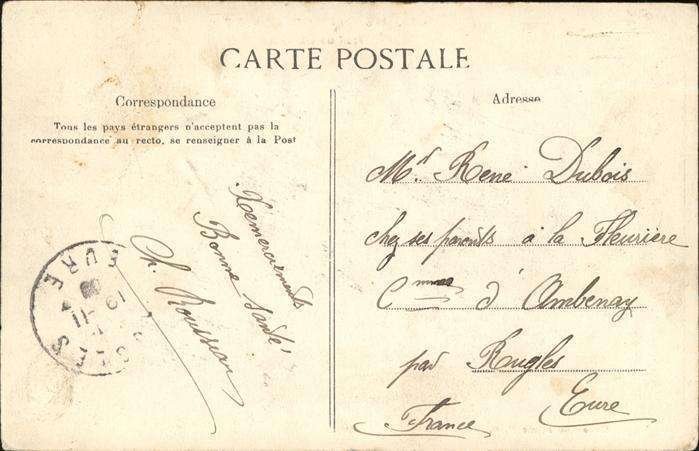 CARTE POSTALE
Correspondance
Tous les pays étrangers n'acceptent pas la
correspondance au recto, se renseigner à la Post
Remerciements
Bonne santé
Ch. Rousseau
EURE
11
Adresse
Mr. René Dubois
chez ses parents à la Fleurière
Cmmne d'Ambenay
par Rugles
Eure
France